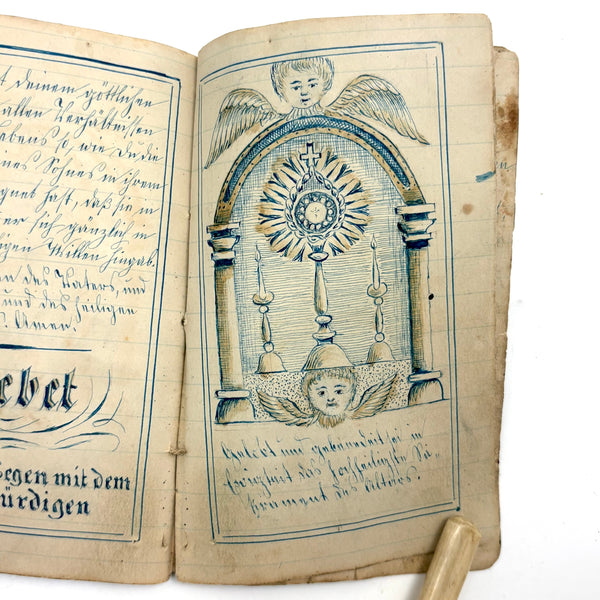 t deinem göttlichen
allen Verhältnissen
Lebens so, wie du die
nes Sohnes in ihrem
gnet hast, daß sie in
er sich gänzlich in
igen Willen hingab.
en des Vaters, und
und des heiligen
s. Amen.
ebet
Segen mit dem
ürdigen
Gelobt und gebenedeit sei in
Ewigkeit das Heiligste Sa-
krament des Altars.